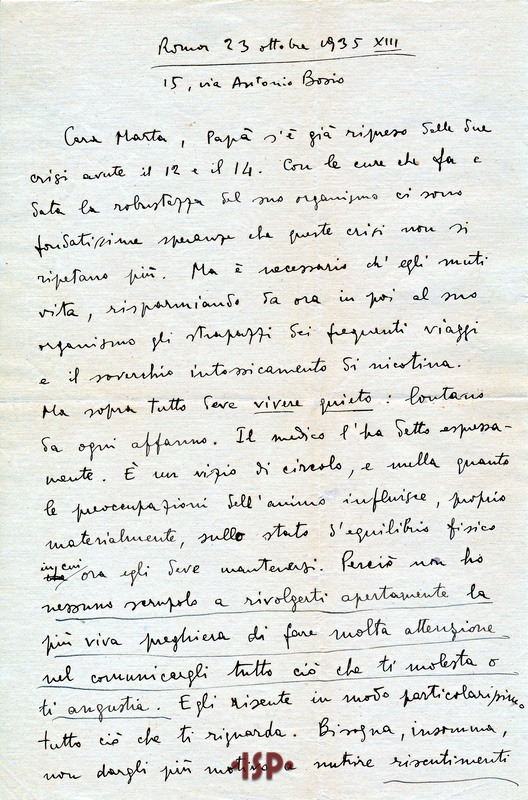 Roma 23 ottobre 1935 XIII
15, via Antonio Bosio
Cara Marta, Papà s'è già ripreso dalle due
crisi avute il 12 e il 14. Con le cure che fa e
data la robustezza del suo organismo ci sono
fondatissime speranze che queste crisi non si
ripetano più. Ma è necessario ch'egli muti
vita, risparmiando da ora in poi al suo
organismo gli strapazzi dei frequenti viaggi
e il soverchio intossicamento di nicotina.
Ma sopra tutto deve vivere quieto: lontano
da ogni affanno. Il medico l'ha detto espressa-
mente. È un vizio di circolo, e nulla quanto
le preoccupazioni dell'animo influisce, proprio
materialmente, sullo stato d'equilibrio fisico
in cui
ora egli deve mantenersi. Perciò non ho
nessuno scrupolo a rivolgerti apertamente la
più viva preghiera di fare molta attenzione
nel comunicargli tutto ciò che ti molesta o
ti angustia. Egli risente in modo particolarissimo
tutto ciò che ti riguarda. Bisogna, insomma,
non dargli più motivo a nutrire risentimenti
ISP